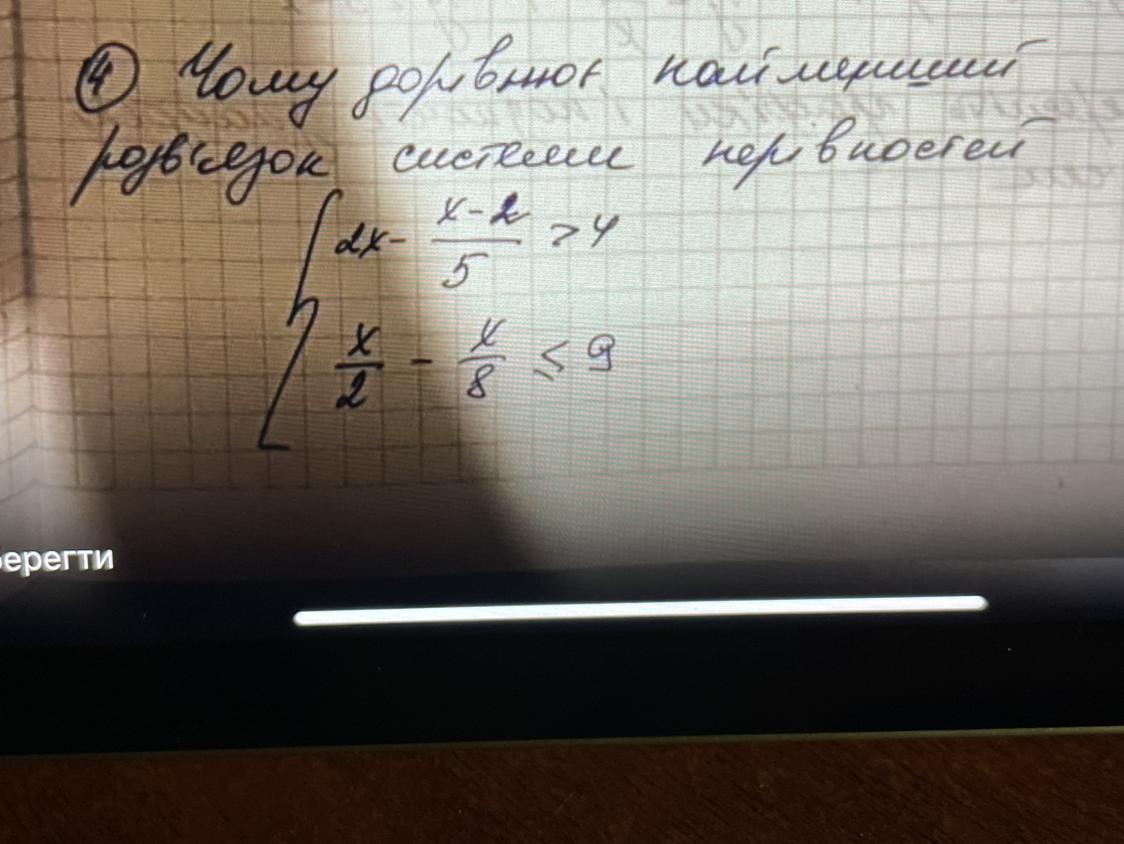 ④ Чому дорівнює найменший
розв'язок системи нерівностей
2x - \frac{x-2}{5} > 4
\frac{x}{2} - \frac{x}{8} ≤ 9
берегти